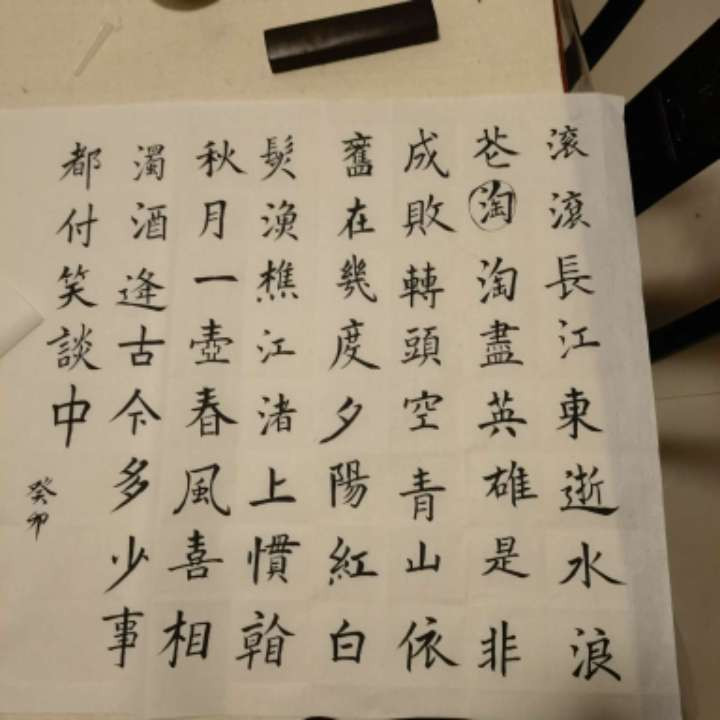 滚滾長江東逝水浪
花淘淘盡英雄是非
成敗轉頭空青山依
舊在幾度夕陽紅白
髮漁樵江渚上慣看
秋月一壺春風喜相
濁酒逢古今多少事
都付笑談中
癸卯